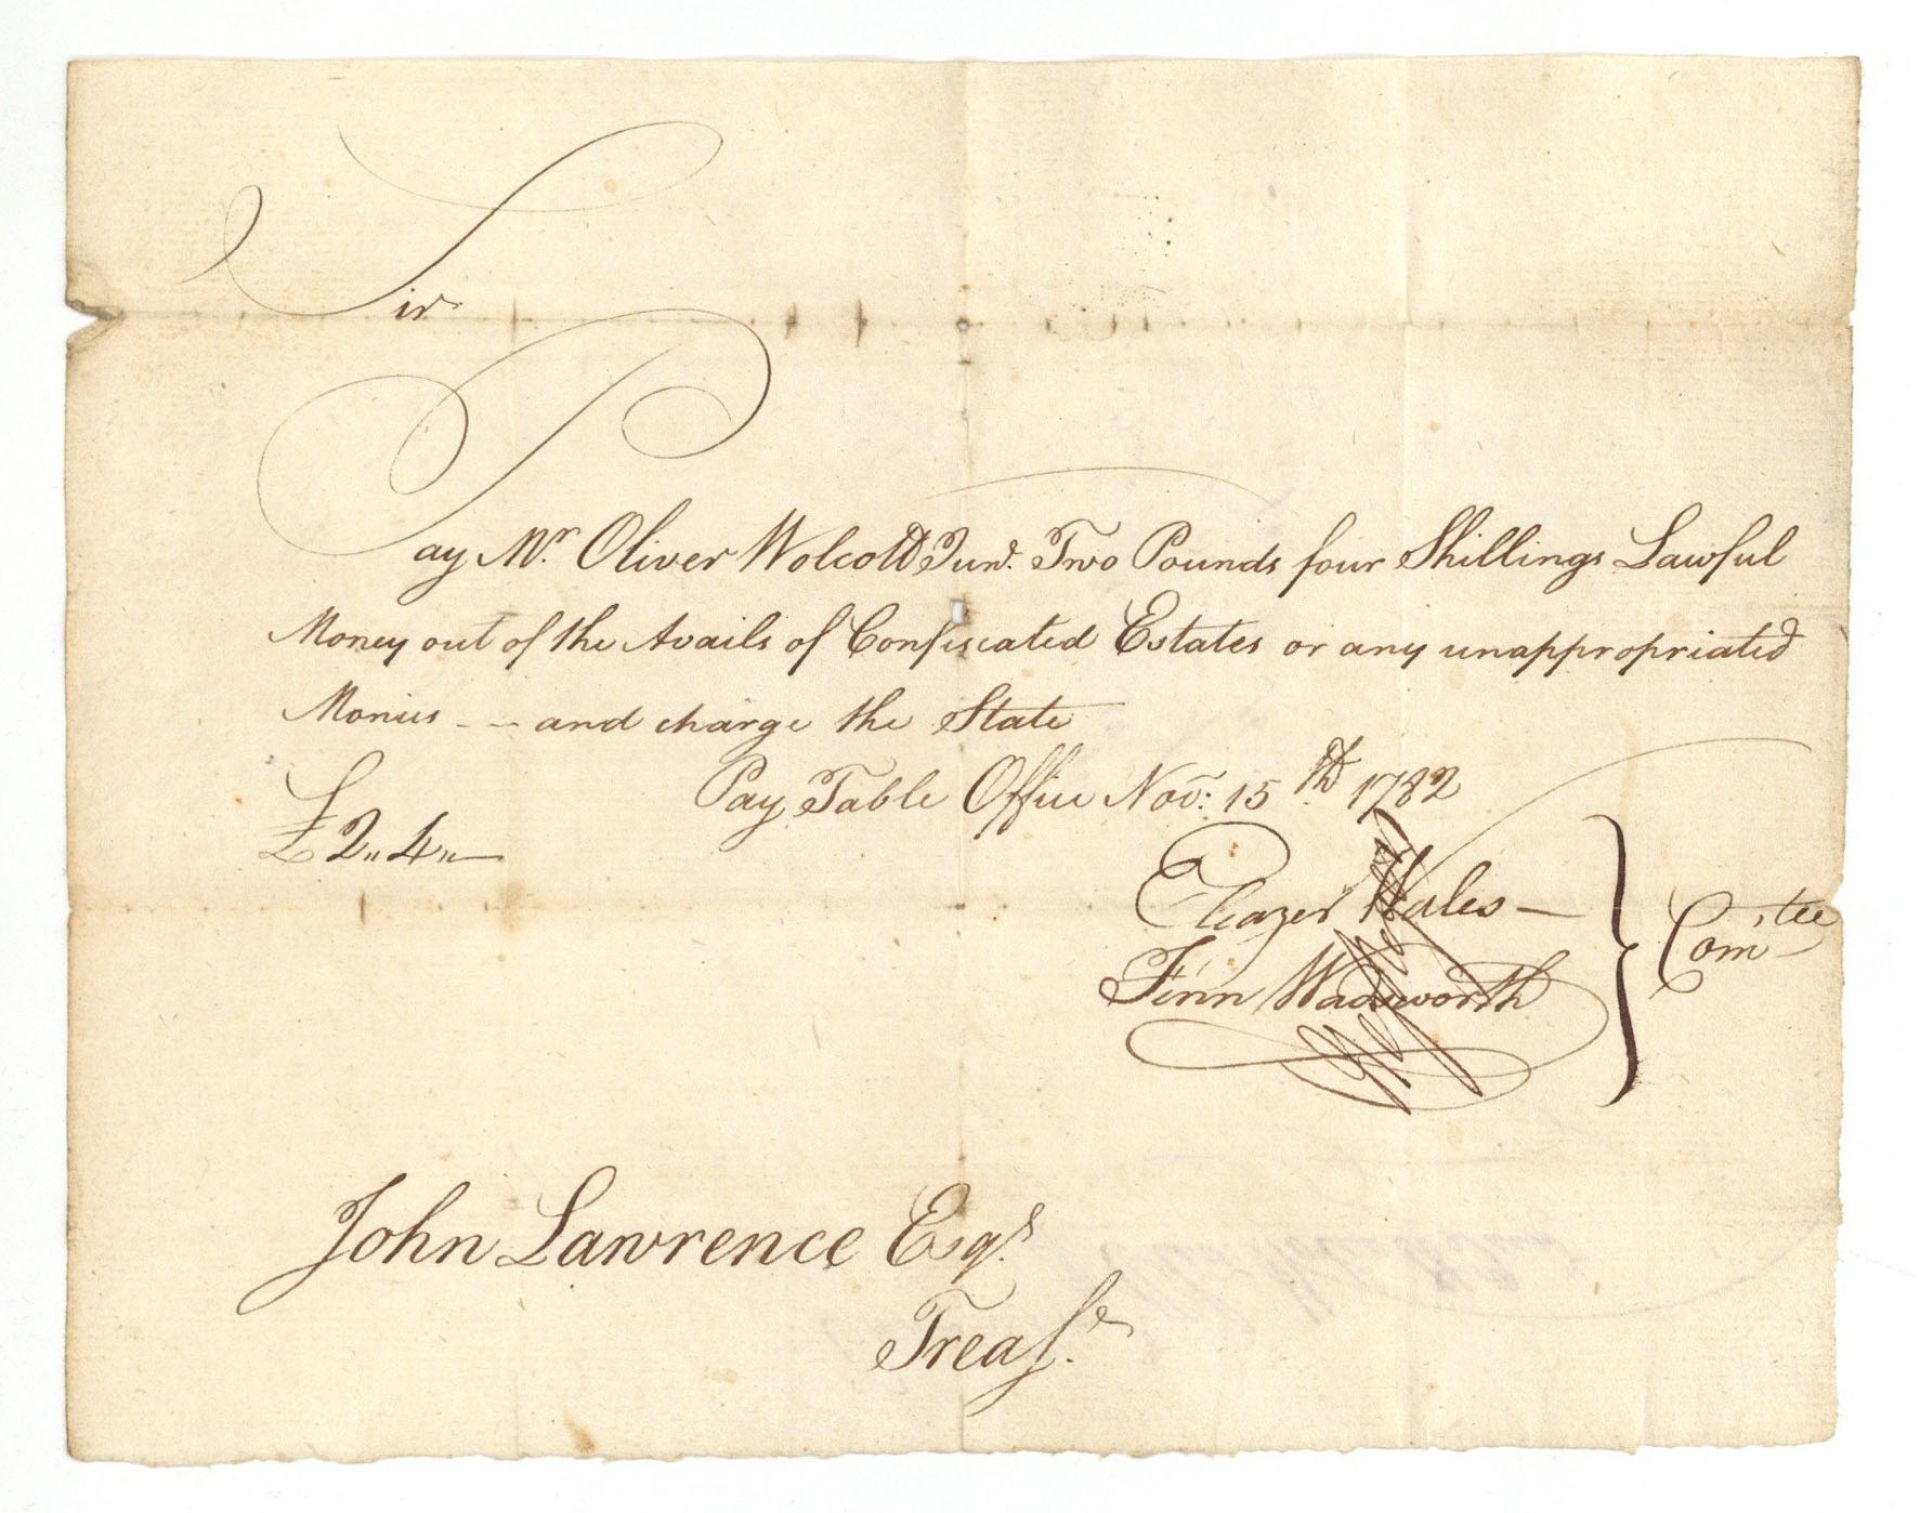 Sir
Pay Mr. Oliver Wolcott Junr. Two Pounds four Shillings Lawful
Money out of the Avails of Confiscated Estates or any unappropriated
Monies --- and charge the State
Pay Table Office Nov: 15th 1782
£2 " 4 " —
Eleazer Wales —
Fenn Wadsworth
} Com,tee
John Lawrence Esqr.
Treasr.